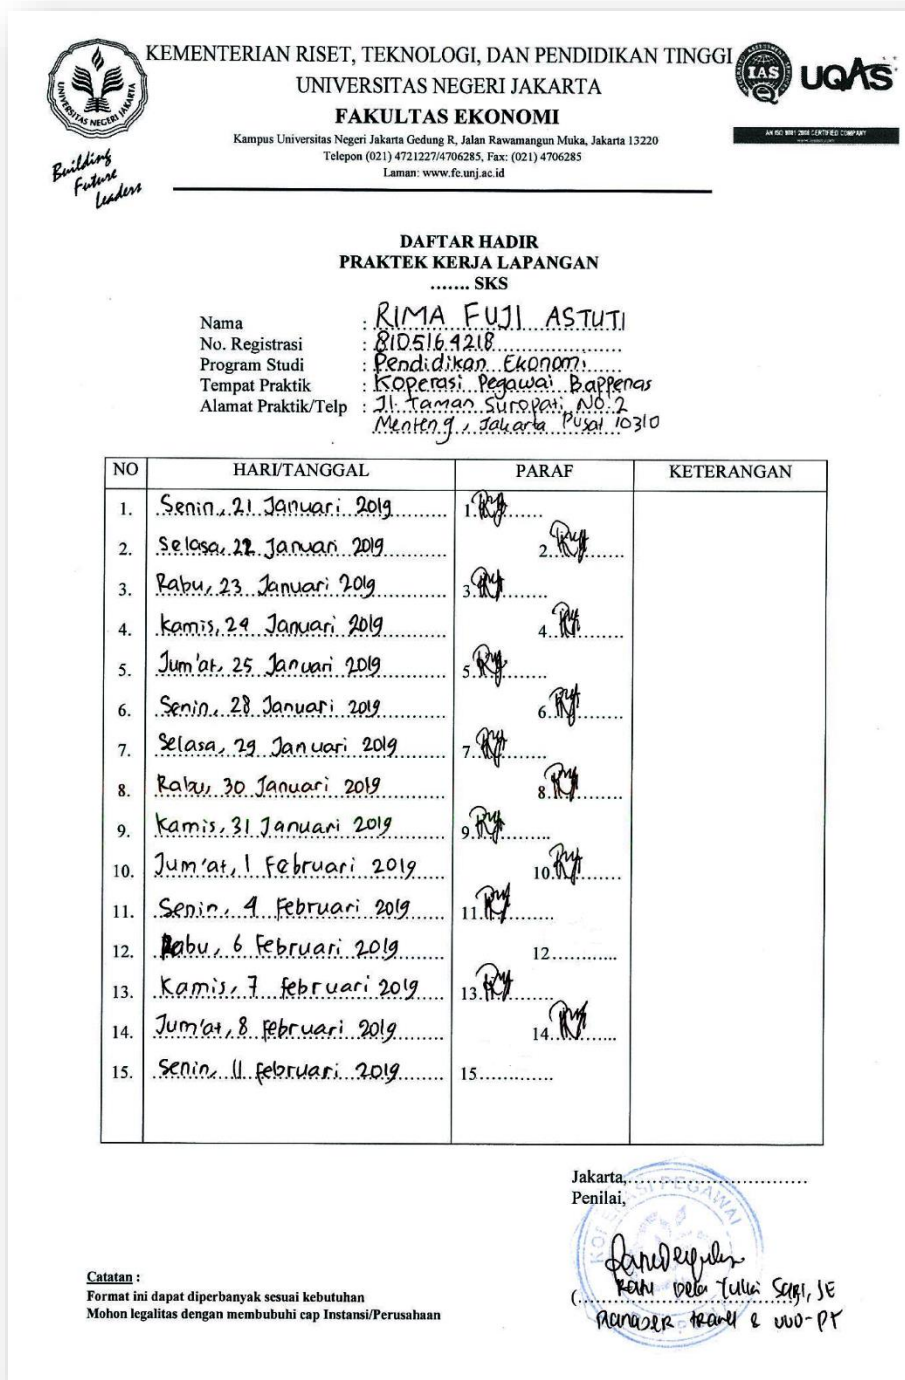 KEMENTERIAN RISET, TEKNOLOGI, DAN PENDIDIKAN TINGGI
UNIVERSITAS NEGERI JAKARTA
FAKULTAS EKONOMI
Kampus Universitas Negeri Jakarta Gedung R, Jalan Rawamangun Muka, Jakarta 13220
Telepon (021) 4721227/4706285, Fax: (021) 4706285
Laman: www.fe.unj.ac.id
UNIVERSITAS NEGERI JAKARTA
Building
Future
Leaders
IAS
UQAS
AN ISO 9001:2008 CERTIFIED COMPANY
DAFTAR HADIR
PRAKTEK KERJA LAPANGAN
....... SKS
Nama : RIMA FUJI ASTUTI
No. Registrasi : 8105164218
Program Studi : Pendidikan Ekonomi
Tempat Praktik : Koperasi Pegawai Bappenas
Alamat Praktik/Telp : Jl. Taman Suropati, No. 2
Menteng, Jakarta Pusat 10310
NO HARI/TANGGAL PARAF KETERANGAN
1. Senin, 21 Januari 2019 1.
2. Selasa, 22 Januari 2019 2.
3. Rabu, 23 Januari 2019 3.
4. Kamis, 24 Januari 2019 4.
5. Jum'at, 25 Januari 2019 5.
6. Senin, 28 Januari 2019 6.
7. Selasa, 29 Januari 2019 7.
8. Rabu, 30 Januari 2019 8.
9. Kamis, 31 Januari 2019 9.
10. Jum'at, 1 Februari 2019 10.
11. Senin, 4 Februari 2019 11.
12. Rabu, 6 Februari 2019 12............
13. Kamis, 7 februari 2019 13.
14. Jum'at, 8 februari 2019 14.
15. Senin, 11 februari 2019 15.............
Jakarta,................................
Penilai,
KOPERASI PEGAWAI
Sari, SE
Manager travel &
Catatan :
Format ini dapat diperbanyak sesuai kebutuhan
Mohon legalitas dengan membubuhi cap Instansi/Perusahaan